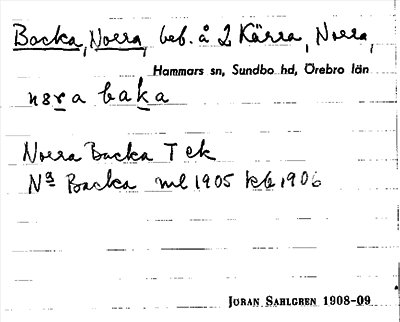 Backa, Norra, beb. å 2 Kärra, Norra,
Hammars sn, Sundbo hd, Örebro län
nɷra baka
Norra Backa T ek
Nª Backa ml 1905 kb 1906
JÖRAN SAHLGREN 1908-09